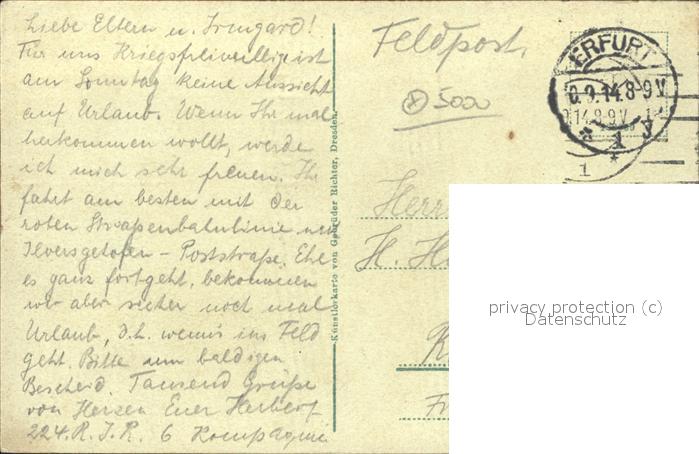 Liebe Eltern u. Irmgard!
Für uns Kriegsfreiwillige ist
am Sonntag keine Aussicht
auf Urlaub. Wenn Ihr mal
herkommen wollt, werde
ich mich sehr freuen. Ihr
fahrt am besten mit der
roten Straßenbahnlinie
Ilversgehofen - Poststraße. Ehe
es ganz fortgeht, bekommen
wir aber sicher noch mal
Urlaub, d.h. wenn's ins Feld
geht. Bitte um baldigen
Bescheid. Tausend Grüße
von Herzen Euer Herbert
224. R. I. R. 6 Kompagnie
Künstlerkarte von Gebrüder Richter, Dresden
Feldpost.
500
ERFURT
9.14.8-9V
1
Herr
H.
privacy protection (c)
Datenschutz